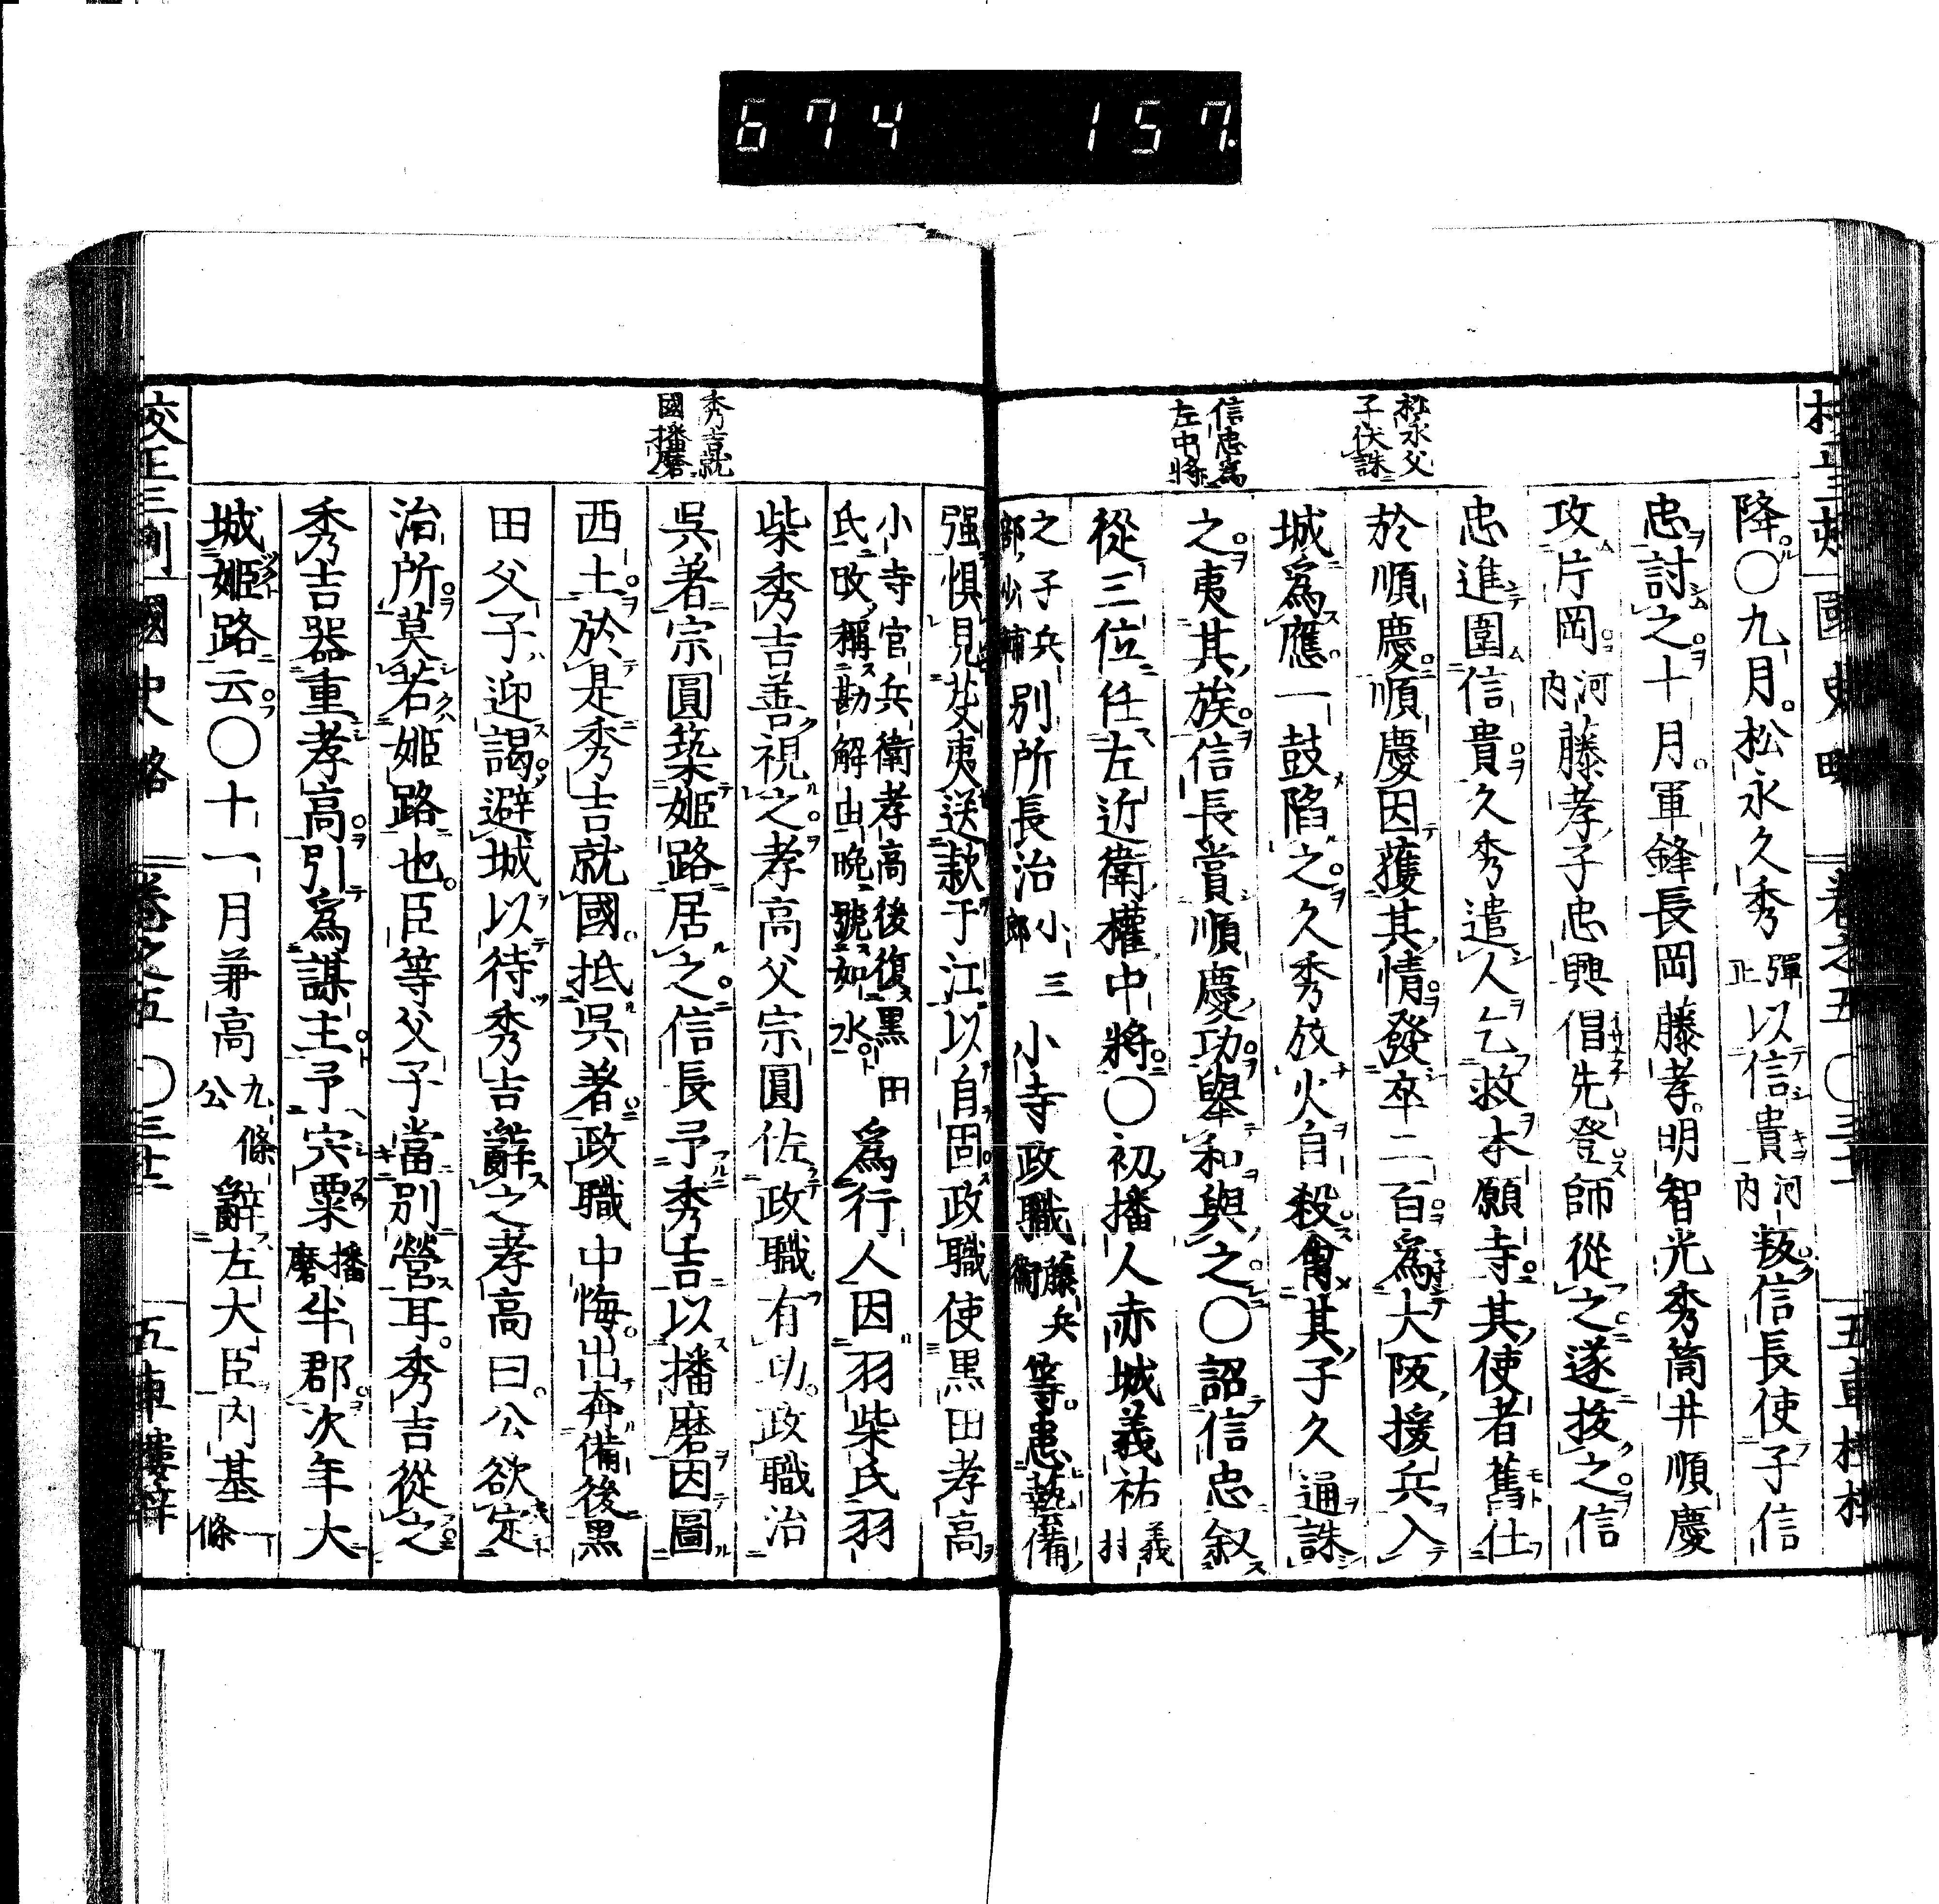 674 157
降〇九月松永久秀彈正以信貴河内叛信長使子信
忠討之十月軍鋒長岡藤孝明智光秀筒井順慶
攻片岡河内藤孝子忠興倡先登師從之遂拔之信
忠進圍信貴久秀遣人乞救本願寺其使者舊仕
於順慶順慶因獲其情發卒二百爲大阪援兵入
城爲應一鼓陷之久秀放火自殺禽其子久通誅
之夷其族信長賞順慶功擧和與之〇詔信忠叙
從三位任左近衛權中將〇初播人赤城義祐義村
之子兵部少輔別所長治小三郎小寺政職藤兵衛等患藝備
强懼見芟夷送款于江以自固政職使黒田孝高
小寺官兵衛孝高後復黒田氏改稱勘解由晩號如水爲行人因羽柴氏羽
柴秀吉善視之孝高父宗圓佐政職有功政職治
呉著宗圓築姫路居之信長予秀吉以播磨因圖
西土於是秀吉就國抵呉著政職中悔出奔備後黒
田父子迎謁避城以待秀吉辭之孝高曰公欲定
治所莫若姫路也臣等父子當別營耳秀吉從之
秀吉器重孝高引爲謀主予宍粟播磨半郡次年大
城姫路云〇十一月兼高九條公辭左大臣内基一條
松永父子伏誅
信忠爲左中將
秀吉就國播磨
國史略 卷之五 〇三十一 五車樓梓
校正三刻 國史略 卷之五 〇三十二 五車樓梓